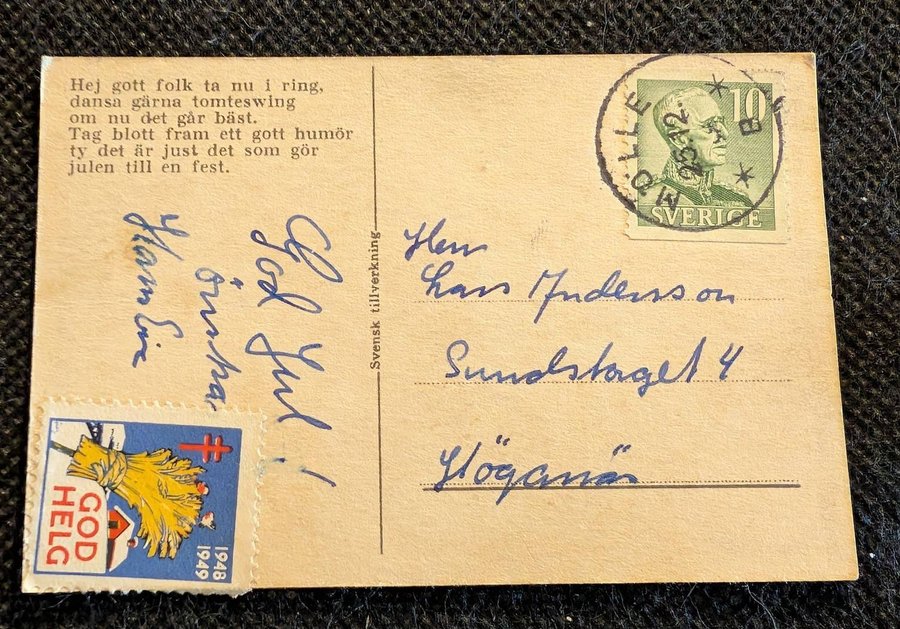 Hej gott folk ta nu i ring,
dansa gärna tomteswing
om nu det går bäst.
Tag blott fram ett gott humör
ty det är just det som gör
julen till en fest.
God Jul!
önskar
Svensk tillverkning
MÖLLE
B
10
SVERIGE
Herr
Lars Andersson
Sundstorget 4
Höganäs
GOD
HELG
1948
1949